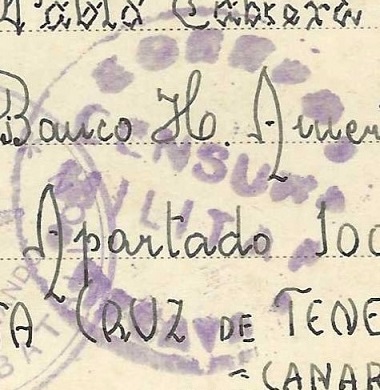 Pablo Cabrera
Banco H. Ameri
Apartado 100
TA CRUZ DE TENE
- CANAR
CENSURA
MILITAR